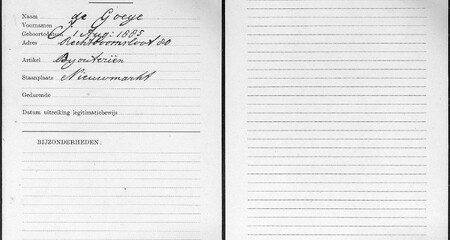 Naam de Goeye
Voornamen
Geboortedatum 1 Aug: 1885
Adres Rechtboomsloot 80
Artikel Byouteriën
Staanplaats Nieuwmarkt
Gedurende
Datum uitreiking legitimatiebewijs
BIJZONDERHEDEN: